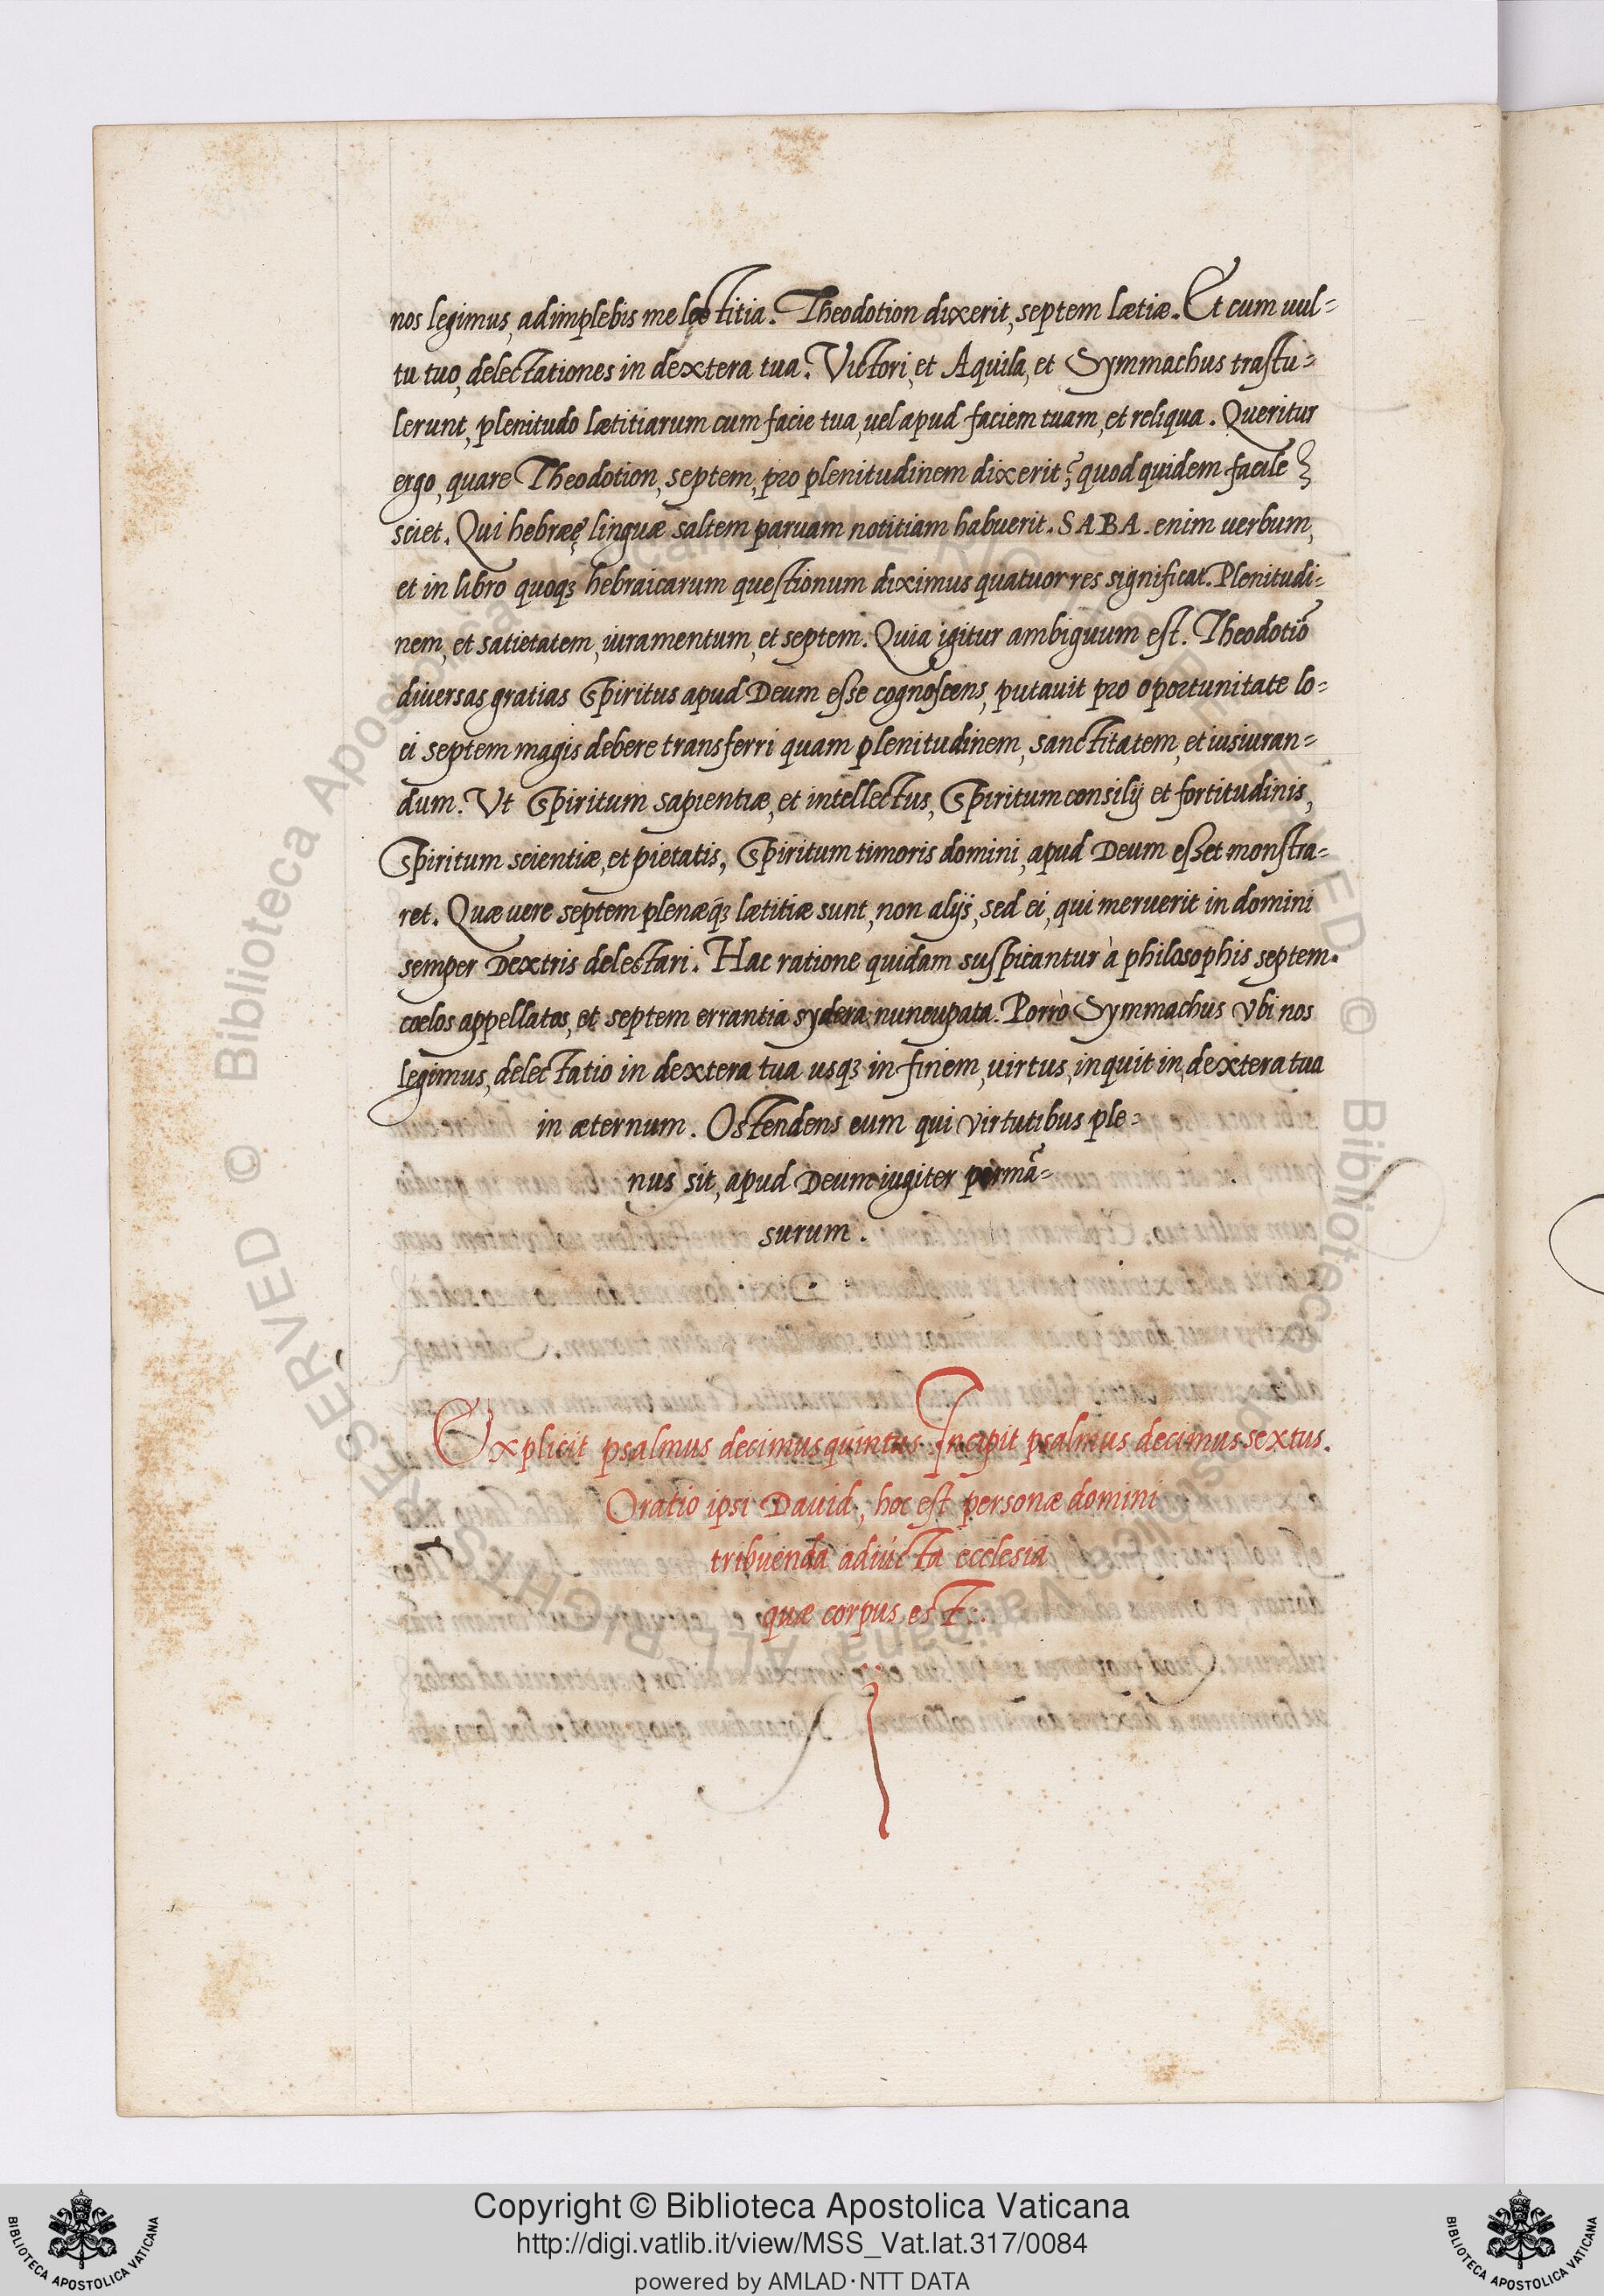 nos legimus, adimplebis me lætitia. Theodotion dixerit, septem lætiæ. Et cum uul=
tu tuo, delectationes in dextera tua. Victori, et Aquila, et Symmachus trastu=
lerunt, plenitudo lætitiarum cum facie tua, uel apud faciem tuam, et reliqua. Queritur
ergo, quare Theodotion, septem, pro plenitudinem dixerit; quod quidem facile
sciet. Qui hebræę linguæ saltem paruam notitiam habuerit. SABA. enim uerbum,
et in libro quoqȝ hebraicarum questionum diximus quatuor res significat. Plenitudi=
nem, et satietatem, iuramentum, et septem. Quia igitur ambiguum est. Theodotiō
diuersas gratias Spiritus apud Deum esse cognoscens, putauit pro oportunitate lo=
ci septem magis debere transferri quam plenitudinem, sanctitatem, et iusiuran=
dum. Vt Spiritum sapientiæ, et intellectus, Spiritum consilij et fortitudinis,
Spiritum scientiæ, et pietatis, Spiritum timoris domini, apud Deum esset monstra=
ret. Quæ uere septem plenæq́ȝ lætitiæ sunt, non alijs, sed ei, qui meruerit in domini
semper Dextris delectari. Hac ratione quidam suspicantur à philosophis septem.
cœlos appellatos, et septem errantia sydera nuncupata. Porrò Symmachus Vbi nos
legimus, delectatio in dextera tua usqȝ in finem, uirtus, inquit in, dextera tua
in æternum. Ostendens eum qui virtutibus ple=
nus sit, apud Deum iugiter permā=
surum.
Explicit psalmus decimusquintus. Incipit psalmus decimussextus.
Oratio ipsi Dauid, hoc est personæ domini
tribuenda adiúcta ecclesia
quæ corpus est:.
Copyright © Biblioteca Apostolica Vaticana
http://digi.vatlib.it/view/MSS_Vat.lat.317/0084
powered by AMLAD·NTT DATA
BIBLIOTECA APOSTOLICA VATICANA
BIBLIOTECA APOSTOLICA VATICANA
© Biblioteca Apostolica Vaticana ALL RIGHTS RESERVED © Biblioteca Apostolica Vaticana ALL RIGHTS RESERVED